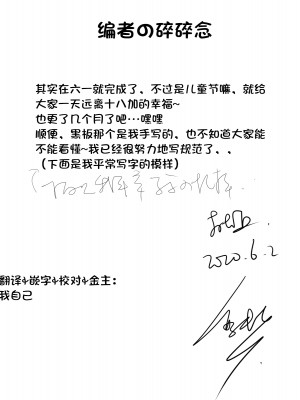 编者の碎碎念
其实在六一就完成了、不过是儿童节嘛、就给
大家一天远离十八加的幸福~
也更了几个月了吧…嘿嘿
顺便、黑板那个是我手写的、也不知道大家能
不能看懂~我已经很努力地写规范了、、
（下面是我平常写字的模样）
2020.6.2
翻译+嵌字+校对+金主：
我自己